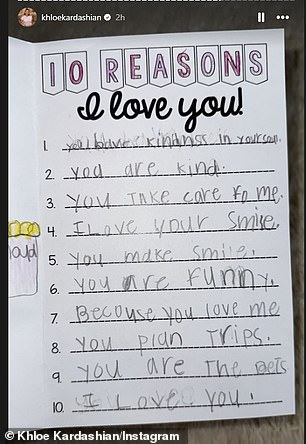 khloekardashian 2h
10 REASONS
I love you!
1. you have kindness in your
2. you are kind.
3. you Take care fo me.
4. I Love your Smile.
5. you make smile.
6. you are funny.
7. Becouse you love me
8. you plan Trips.
9. you are The bets
10. I Love you.
© Khloe Kardashian/Instagram